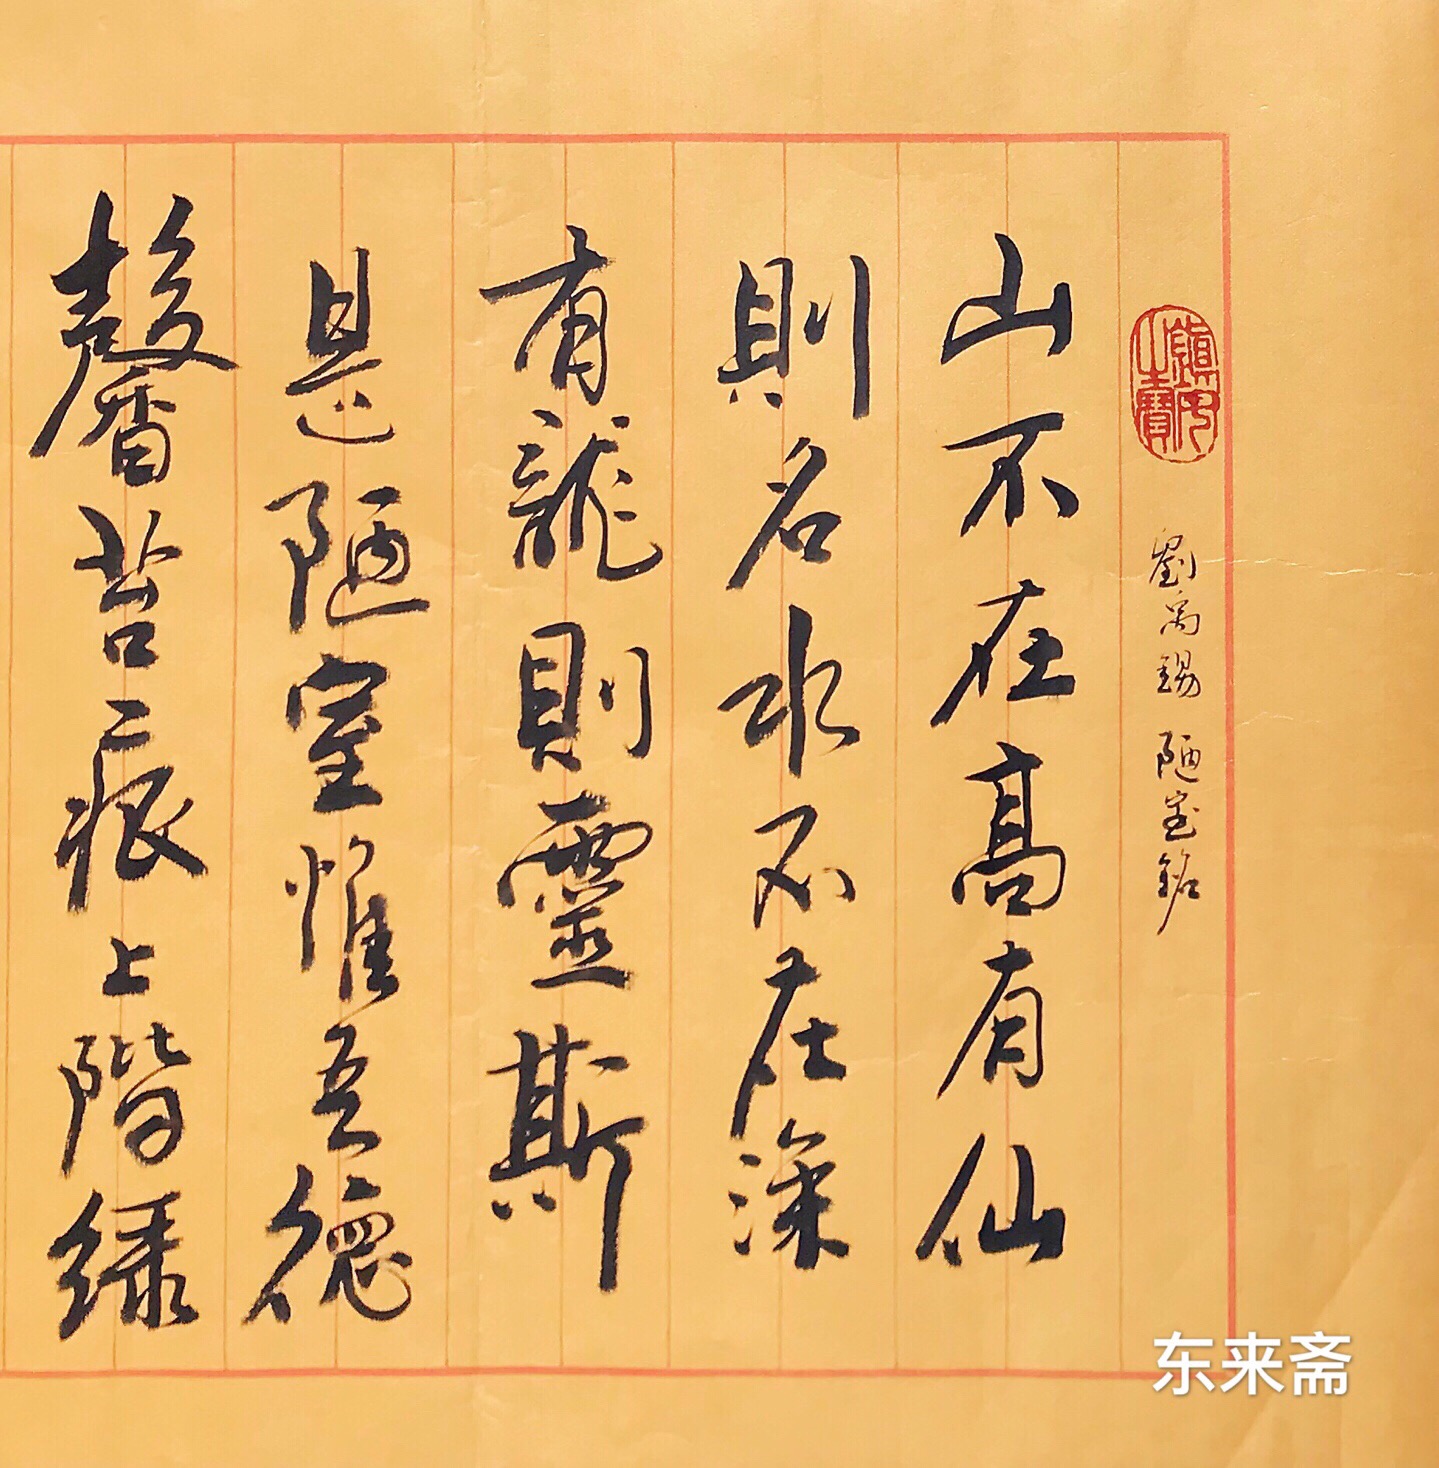 劉禹錫 陋室銘
山不在高有仙
則名水不在深
有龍則靈斯
是陋室惟吾德
馨苔痕上階綠
东来斋